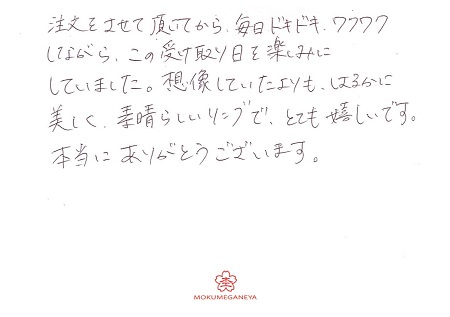 注文をさせて頂いてから、毎日ドキドキ、ワクワク
しながら、この受け取り日を楽しみに
していました。想像していたよりも、はるかに
美しく、素晴らしいリングで、とても嬉しいです。
本当にありがとうございます。
MOKUMEGANEYA